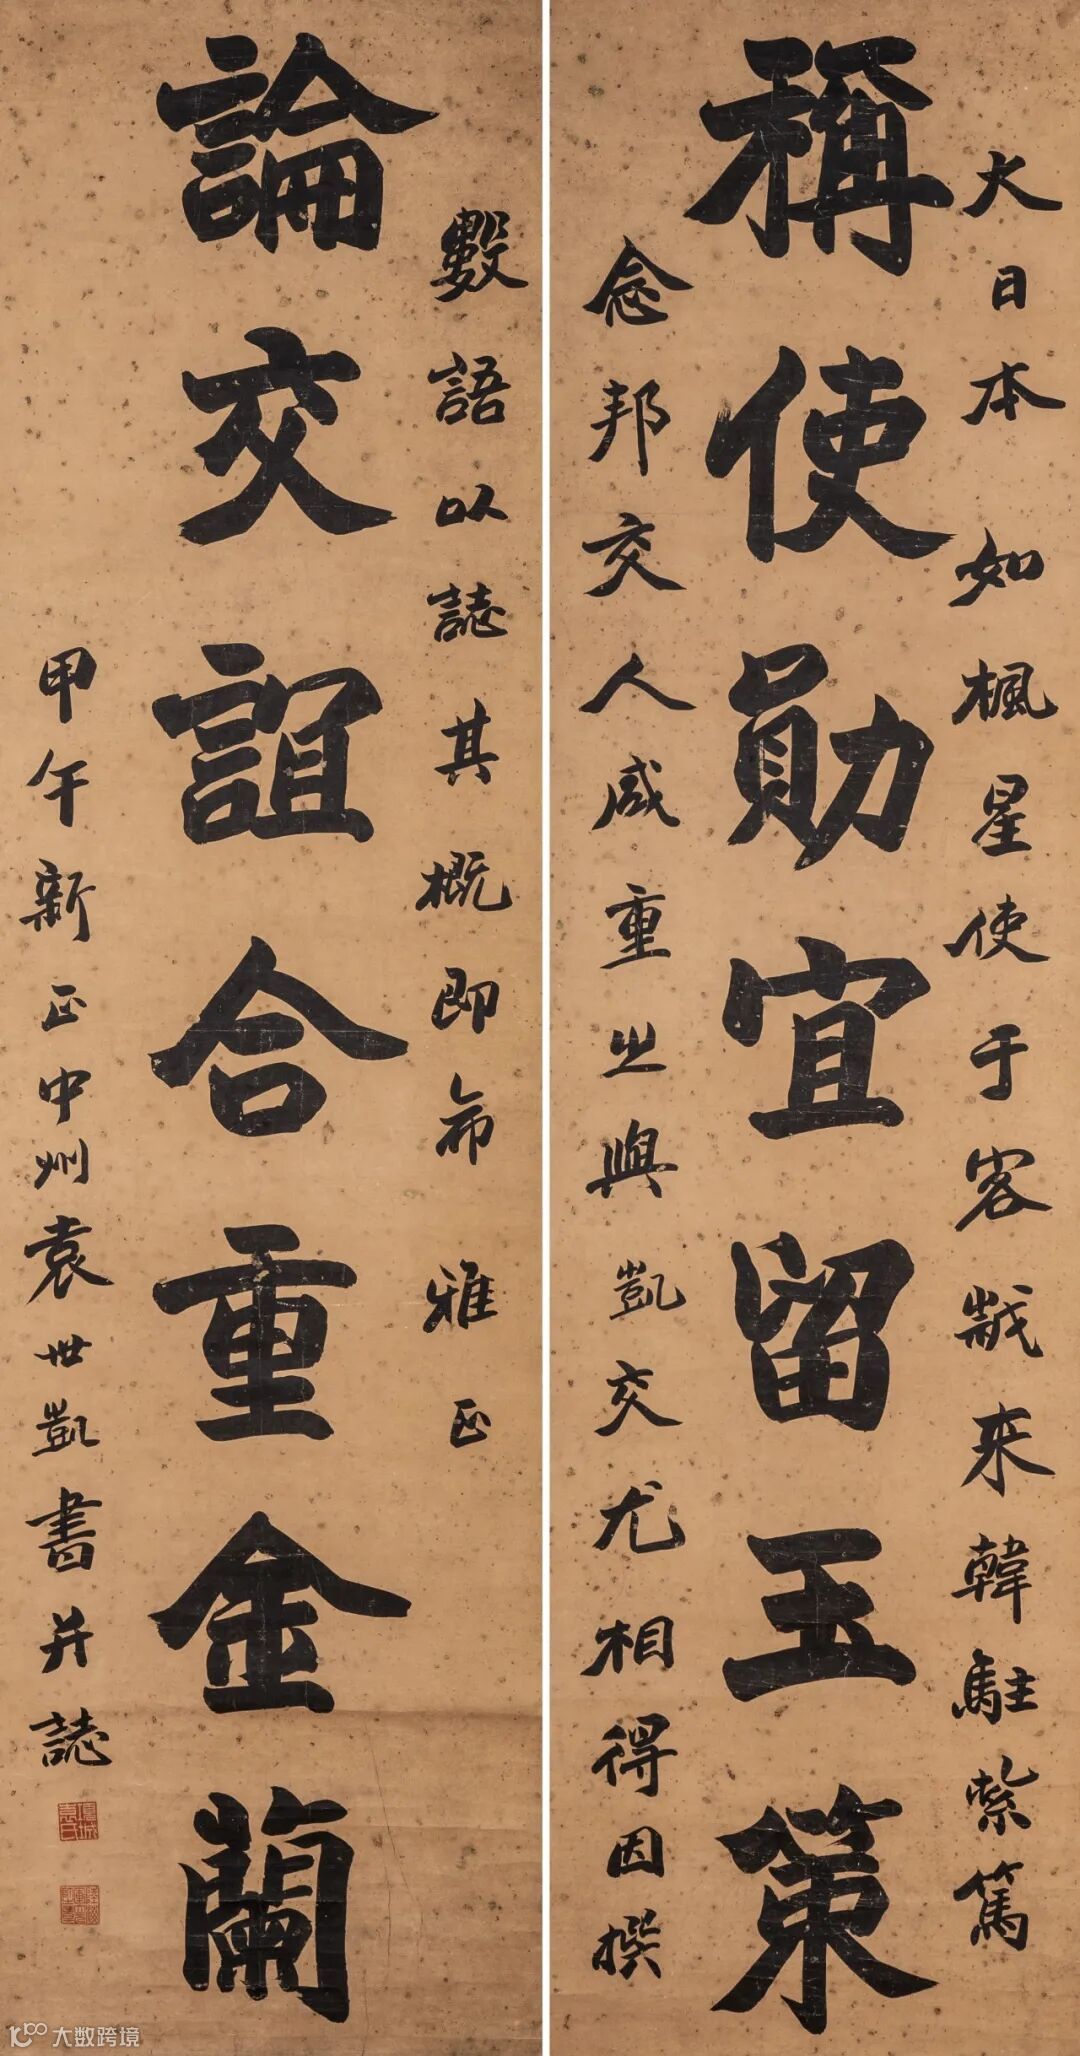 大日本如楓星使于客岁来韓駐紮篤
稱使勛宜留玉策
念邦交人咸重之與凱交尤相得因撰
數語以誌其概即希雅正
論交誼合重金蘭
甲午新正中州袁世凱書并誌
大数跨境